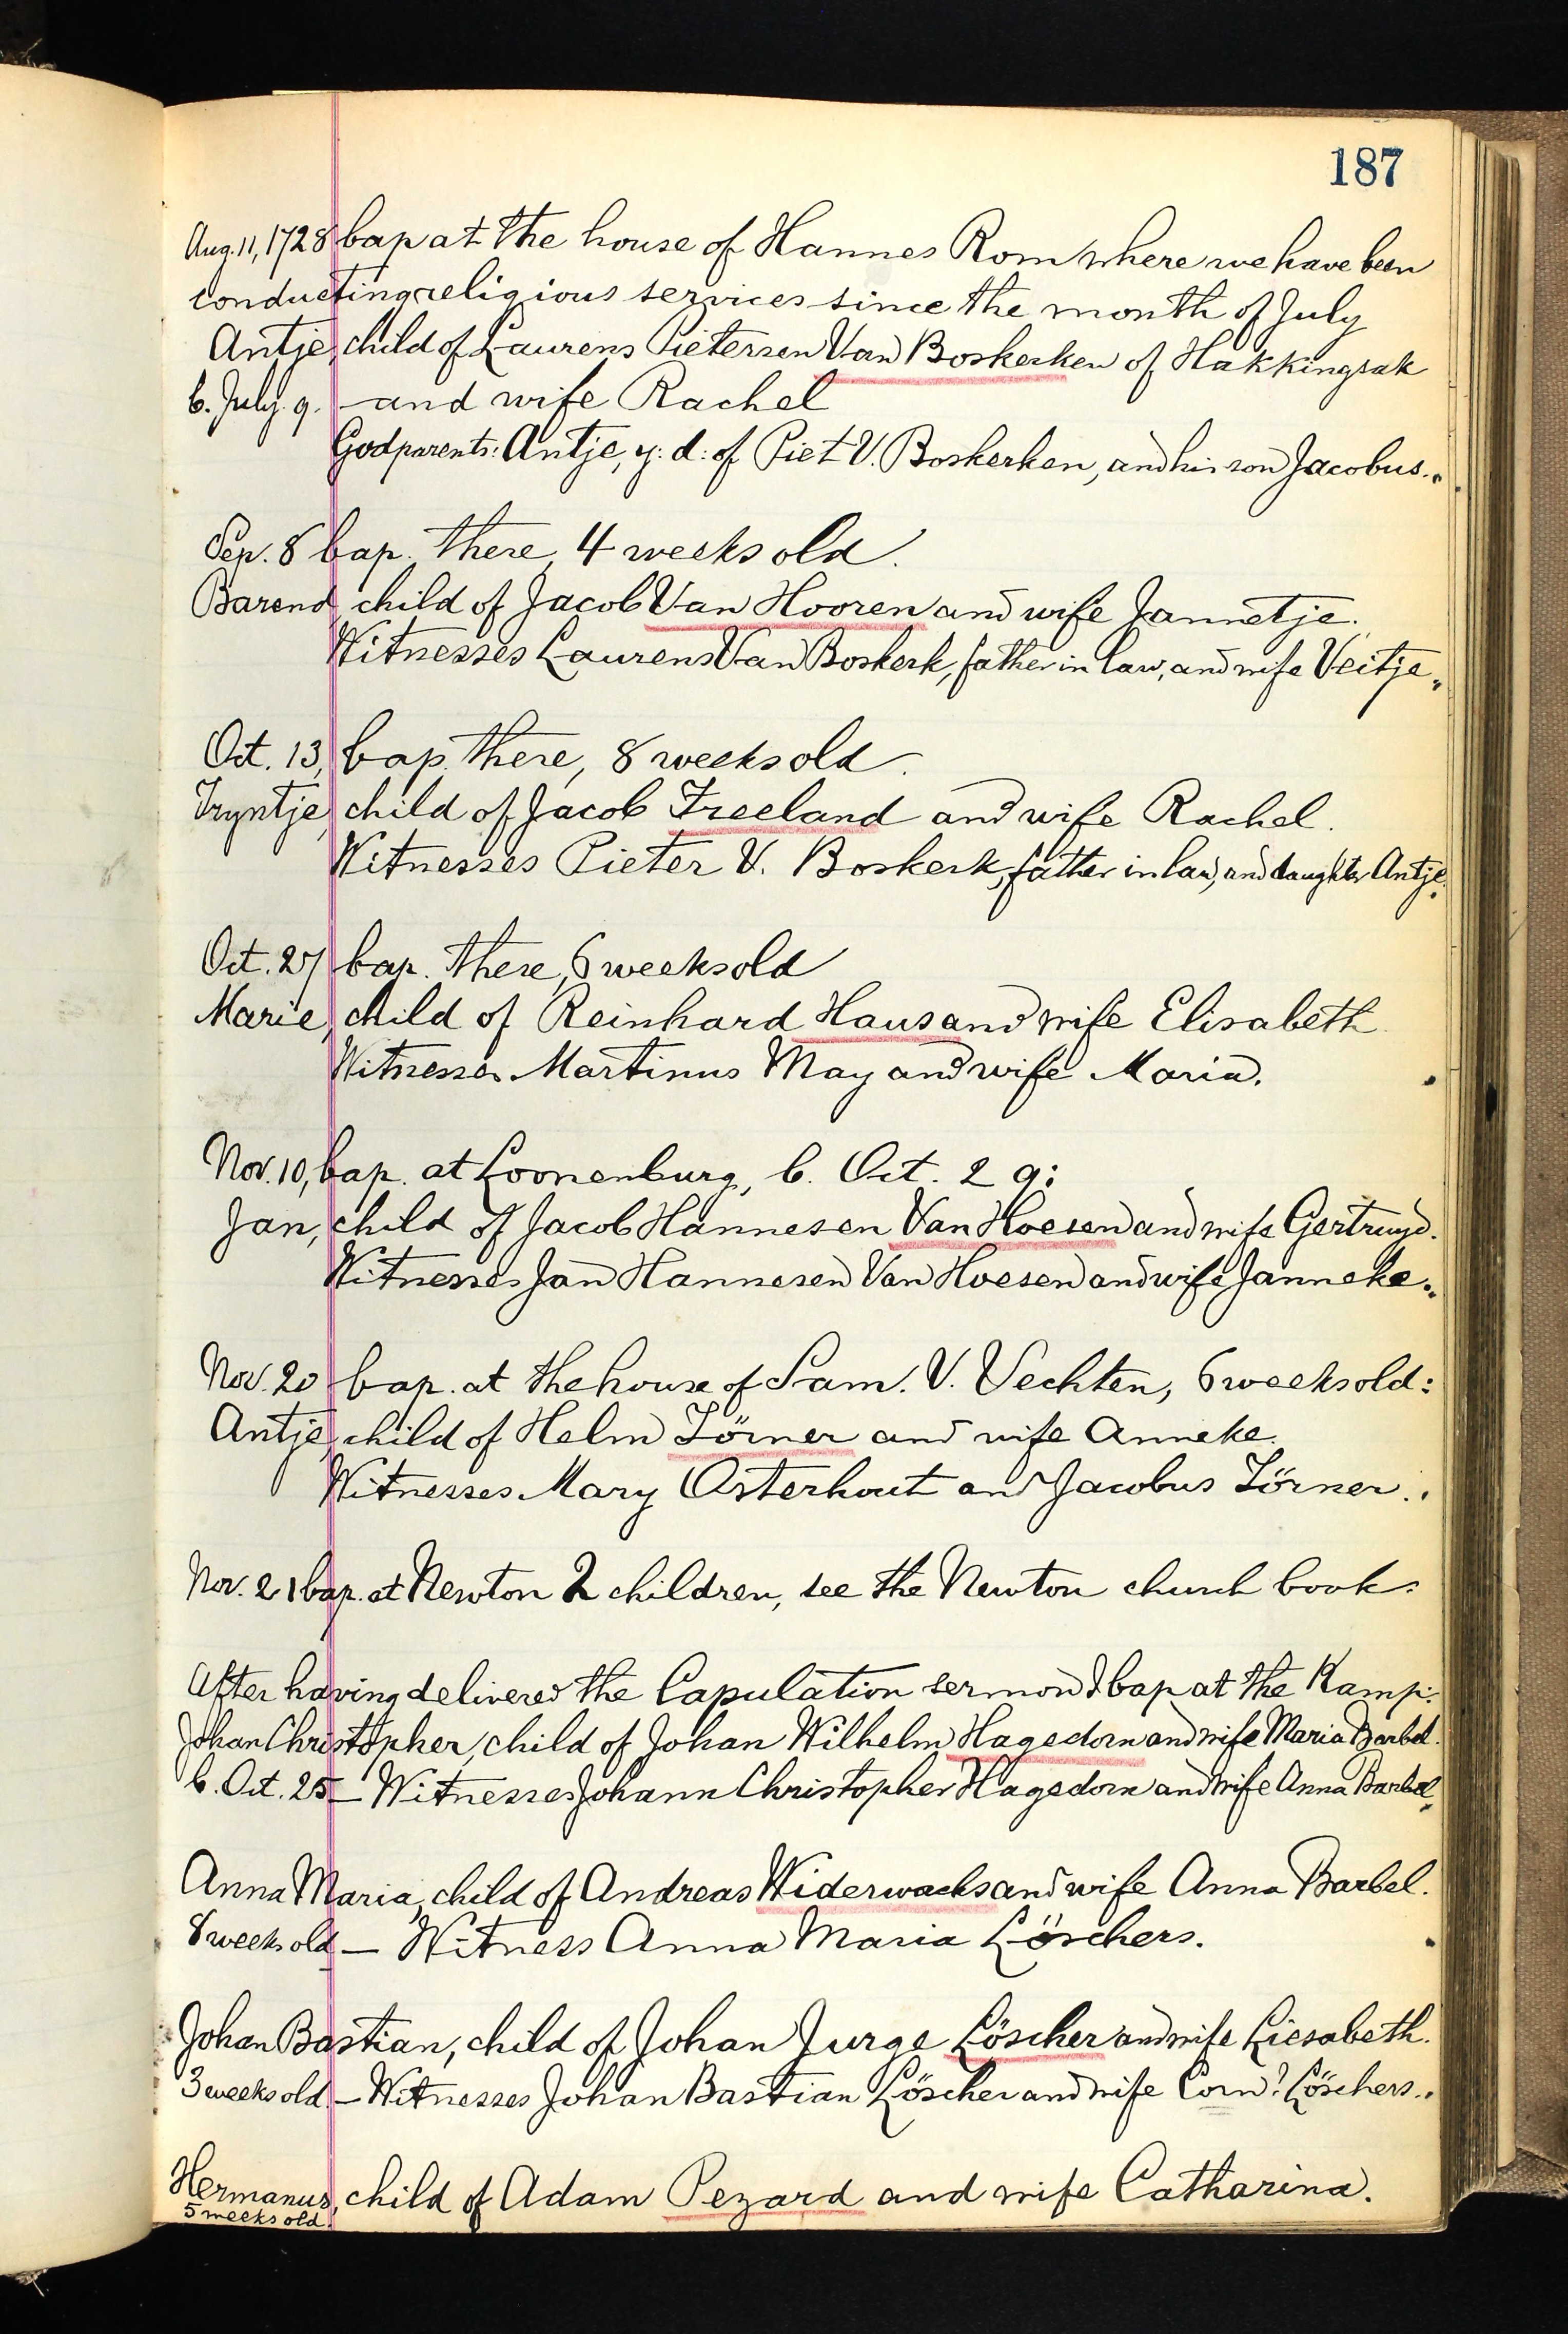 187
Aug. 11, 1728 bap at the house of Hannes Rom where we have been
conducting religious services since the month of July
Antje, child of Laurens Pietersen Van Boskerken of Hakkingsak
b. July 9. - and wife Rachel
Godparents: Antje, y: d: of Piet V. Boskerken, and his son Jacobus..
Sep. 8 bap. there, 4 weeks old.
Barend, child of Jacob Van Hooren and wife Jannetje.
Witnesses Laurens Van Boskerk, father in law, and wife Veitje..
Oct. 13, bap. there, 8 weeks old.
Tryntje, child of Jacob Freeland and wife Rachel.
Witnesses Pieter V. Boskerk, father in law, and daughter Antje.
Oct. 27 bap. there, 6 weeks old
Marie, child of Reinhard Haus and wife Elisabeth
Witnesses Martinus May and wife Maria.
Nov. 10, bap. at Loonenburg, b. Oct. 29:
Jan, child of Jacob Hannesen Van Hoesen and wife Gertruyd.
Witnesses Jan Hannesen Van Hoesen and wife Janneke..
Nov. 20 bap. at the house of Sam. V. Vechten, 6 weeks old:
Antje, child of Helm Törner and wife Anneke.
Witnesses Mary Osterhout and Jacobus Törner..
Nov. 21 bap. at Newton 2 children, see the Newton church book.
After having delivered the Capulation sermon I bap at the Kamp:
Johan Christopher, child of Johan Wilhelm Hagedorn and wife Maria Barbel.
b. Oct. 25 - Witnesses Johann Christopher Hagedorn and wife Anna Barbel.
Anna Maria, child of Andreas Widerwachs and wife Anna Barbel.
8 weeks old - Witness Anna Maria Löschers.
Johan Bastian, child of Johan Jurge Löscher and wife Liesabeth.
3 weeks old. - Witnesses Johan Bastian Löscher and wife Corn? Löschers..
Hermanus, child of Adam Pezard and wife Catharina.
5 weeks old.